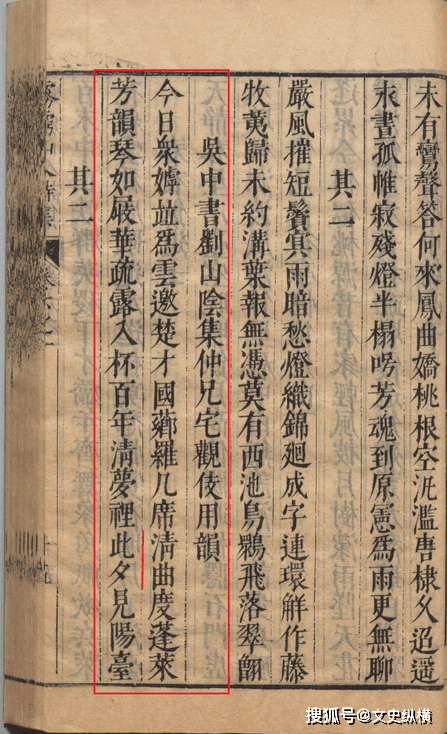 未有鸞聲答何來鳳曲嬌桃根空汎濫唐棣久迢遥
永晝孤帷寂殘燈半榻呺芳魂到原憲爲雨更無聊
其二
嚴風摧短鬢冥雨暗愁燈織錦廻成字連環觧作藤
牧荑歸未約溝葉報無憑莫有西池鳥鶣飛落翠
吳中書劉山陰集仲兄宅觀伎用韻
今日衆嫭竝爲雲邀楚才國薌羅几席清曲度蓬萊
芳韻琴如展華疏露入杯百年清夢裡此夕見陽臺
其二
搜狐号@文史纵横